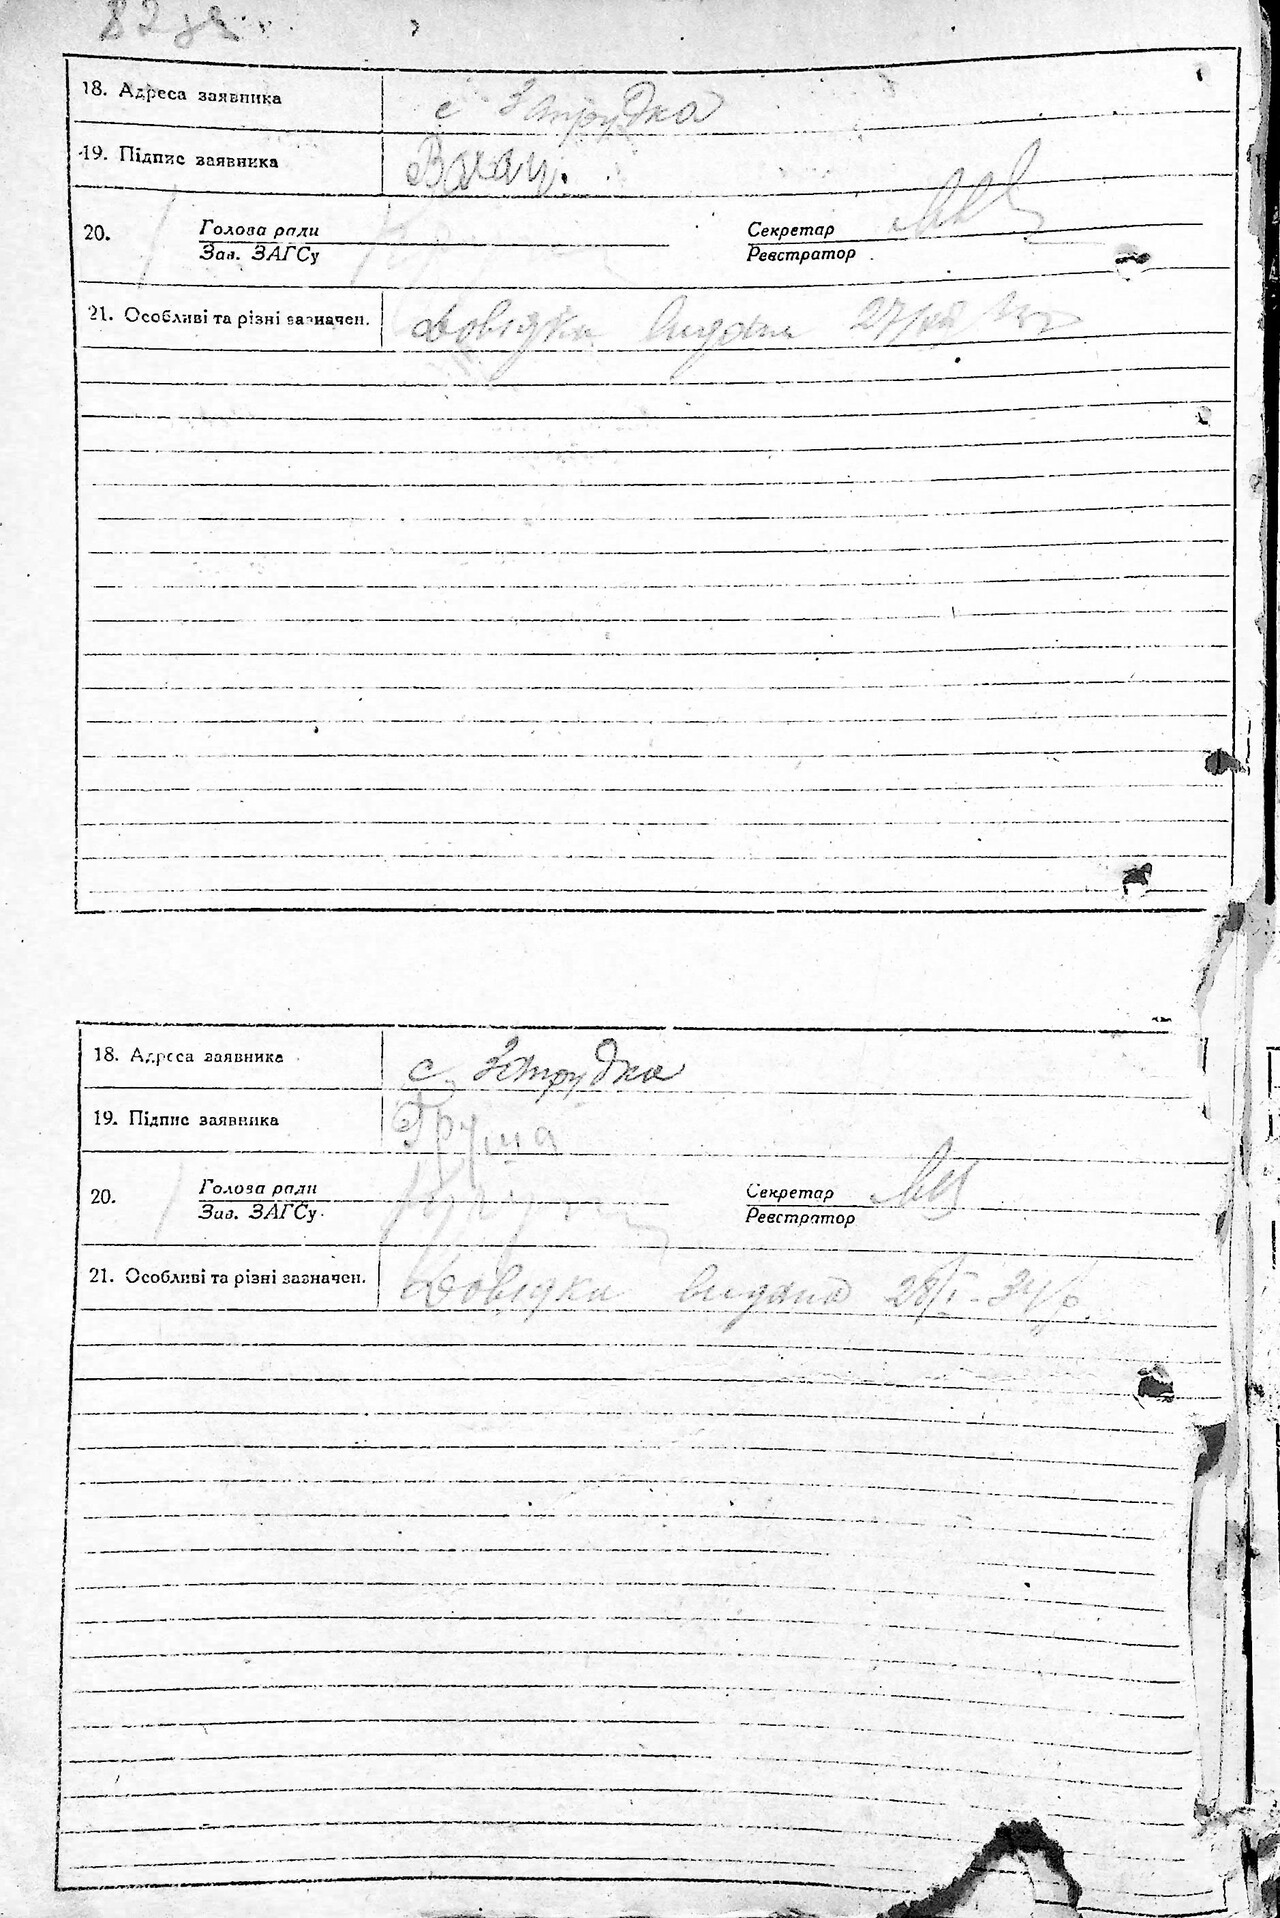 82 зв.
18. Адреса заявника с Затрудка
19. Підпис заявника
20. Голова ради Секретар
Зав. ЗАГСу Реєстратор
21. Особливі та різні зазначен. Довідка видана 27/VII
18. Адреса заявника с. Затрудка
19. Підпис заявника Груша
20. Голова ради Секретар
Зав. ЗАГСу Реєстратор
21. Особливі та різні зазначен. Довідка видана 28/I-34р.